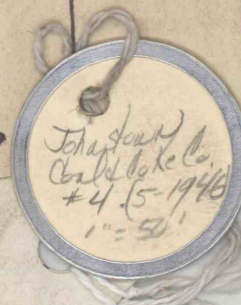 Johnstown
Coal & Coke Co.
#4 (5-1946
1" = 50'